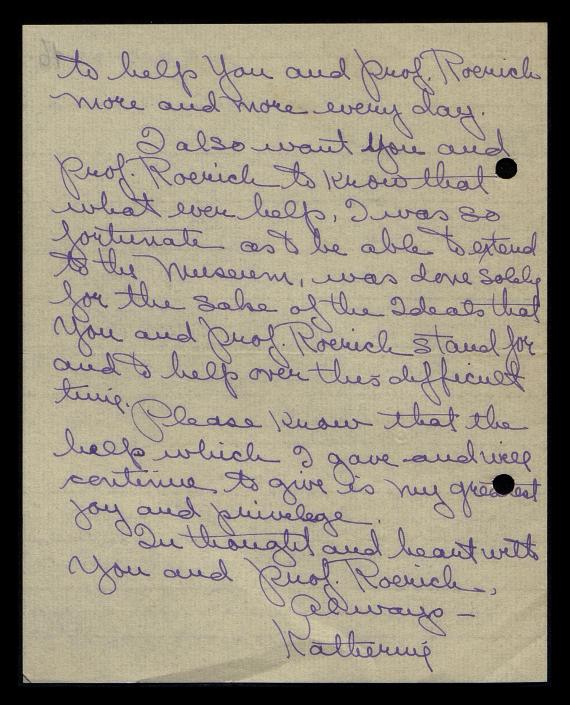 to help You and Prof. Roerich
more and more every day.
I also want You and
Prof. Roerich to know that
what ever help, I was so
fortunate as to be able to extend
to the Museum, was done solely
for the sake of the Ideals that
You and Prof. Roerich stand for
and to help over this difficult
time. Please know that the
help which I gave and will
continue to give is my greatest
joy and privelege.
In thought and heart with
You and Prof. Roerich,
Always –
Katherine